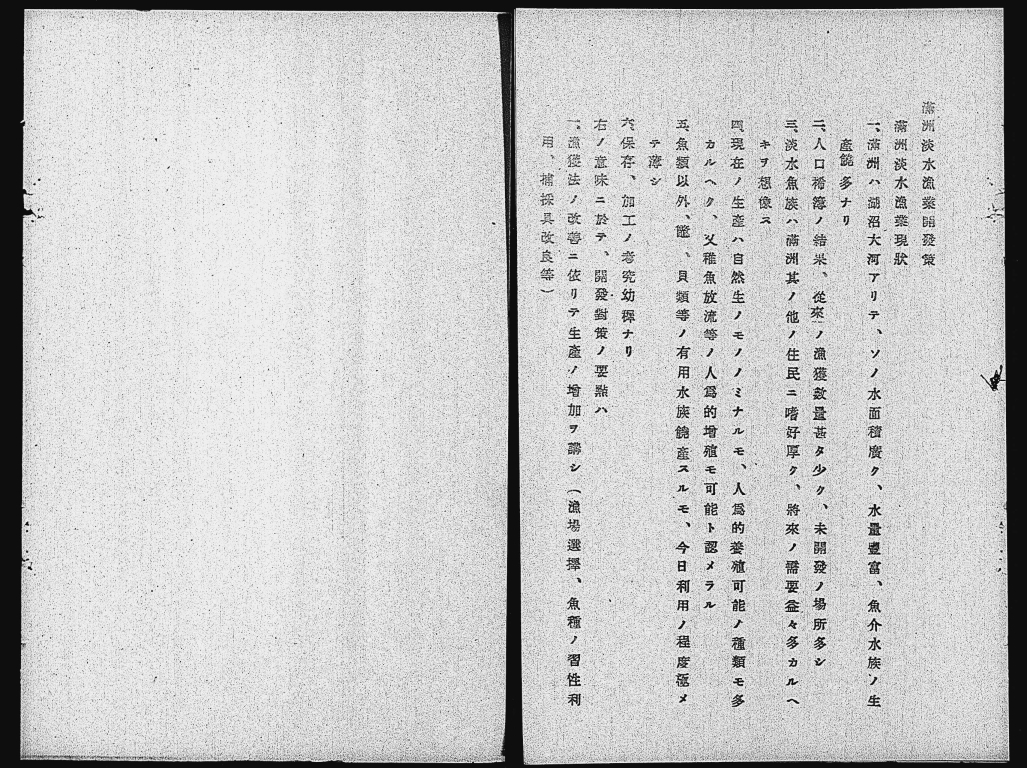 滿洲淡水漁業開發策
滿洲淡水漁業現狀
一、滿洲ハ湖沼大河アリテ、ソノ水面積廣ク、水量豐富、魚介水族ノ生
產饒多ナリ
二、人口稀薄ノ結果、從來ノ漁獲數量甚タ少ク、未開發ノ場所多シ
三、淡水魚族ハ滿洲其ノ他ノ住民ニ嗜好厚ク、將來ノ需要益々多カルヘ
キヲ想像ス
四、現在ノ生產ハ自然生ノモノノミナルモ、人爲的養殖可能ノ種類モ多
カルヘク、又稚魚放流等ノ人爲的增殖モ可能ト認メラル
五、魚類以外、鼈、貝類等ノ有用水族饒產スルモ、今日利用ノ程度極メ
テ薄シ
六、保存、加工ノ考究幼稺ナリ
右ノ意味ニ於テ、開發對策ノ要點ハ
一、漁獲法ノ改善ニ依リテ生產ノ增加ヲ講シ（漁場選擇、魚種ノ習性利
用、捕採具改良等）